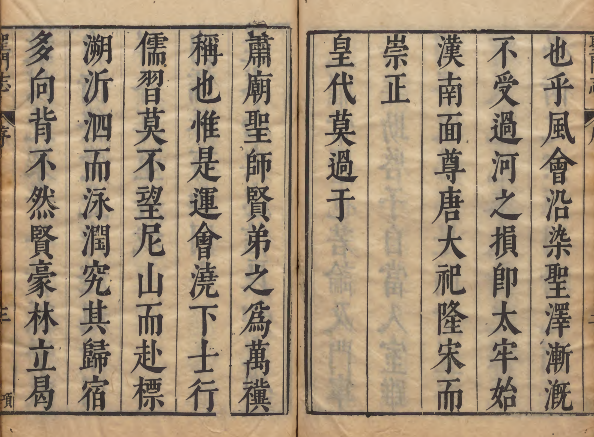 也乎風會沿染聖澤漸漑
不受過河之損即太牢始
漢南面尊唐大祀隆宋而
崇正
皇代莫過于
肅廟聖師賢弟之爲萬禩
稱也惟是運會澆下士行
儒習莫不望尼山而赴標
溯沂泗而泳潤究其歸宿
多向背不然賢豪林立曷
聖門志
序
三
項